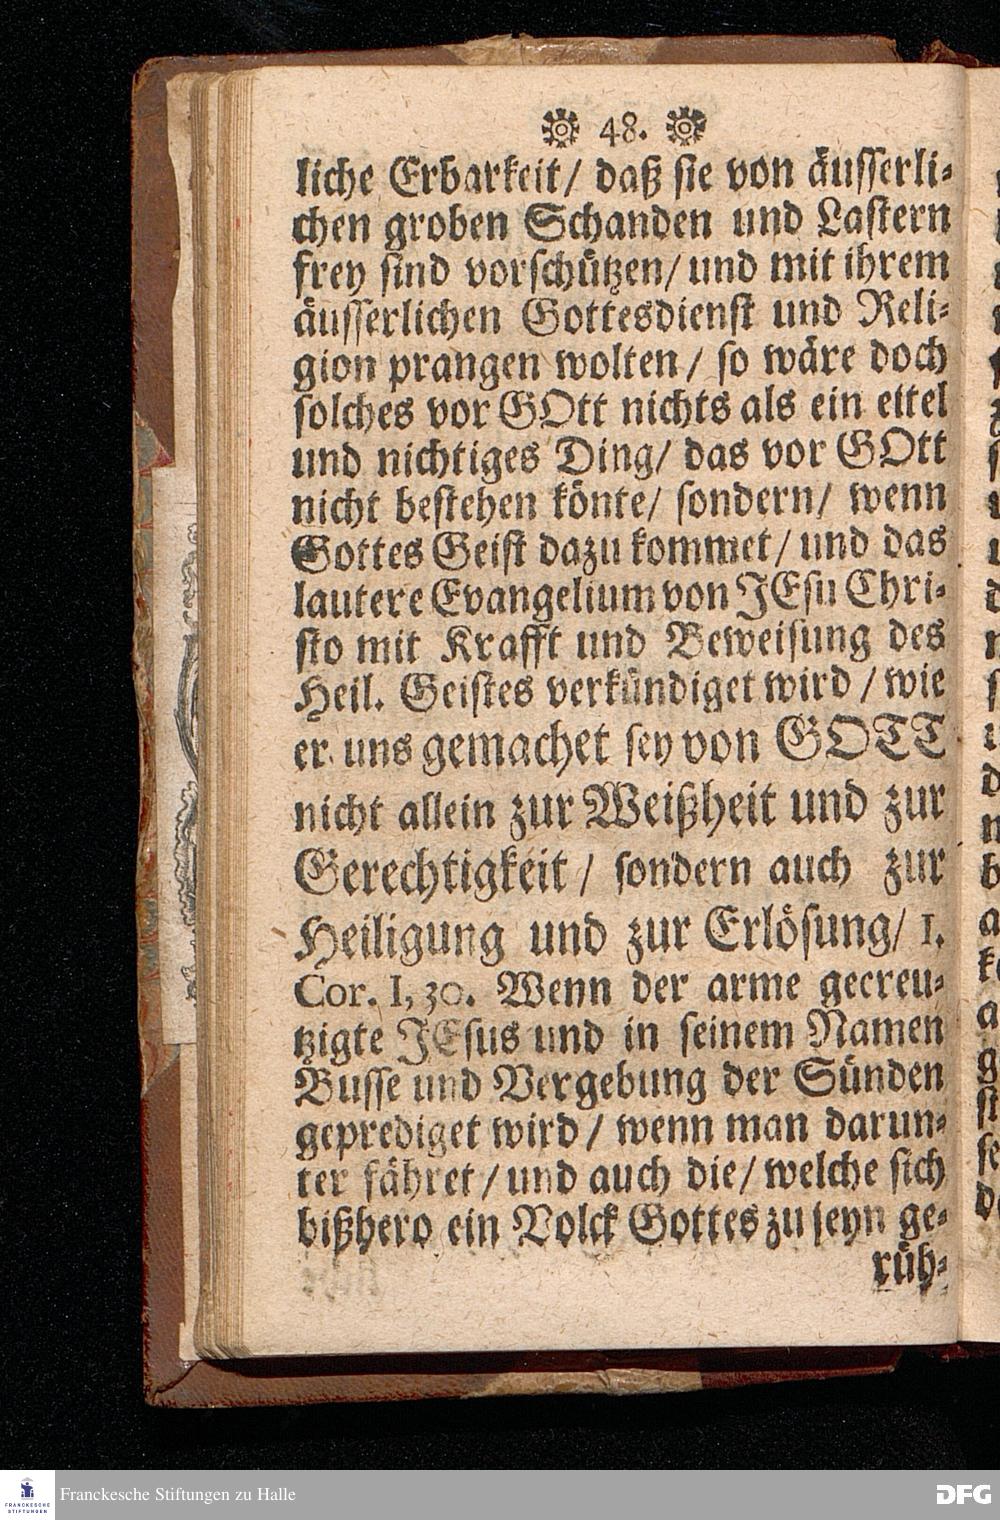 48.
liche Erbarkeit/ daß sie von äusserli-
chen groben Schanden und Lastern
frey sind vorschützen/ und mit ihrem
äusserlichen Gottesdienst und Reli-
gion prangen wolten/ so wäre doch
solches vor GOtt nichts als ein eitel
und nichtiges Ding/ das vor GOtt
nicht bestehen könte/ sondern/ wenn
Gottes Geist dazu kommet/ und das
lautere Evangelium von JEsu Chri-
sto mit Krafft und Beweisung des
Heil. Geistes verkündiget wird/ wie
er uns gemachet sey von GOTT
nicht allein zur Weißheit und zur
Gerechtigkeit/ sondern auch zur
Heiligung und zur Erlösung/ 1.
Cor. 1, 30. Wenn der arme gecreu-
tzigte JEsus und in seinem Namen
Busse und Vergebung der Sünden
geprediget wird/ wenn man darun-
ter fähret/ und auch die/ welche sich
bißhero ein Volck Gottes zu seyn ge-
rüh-
FRANCKESCHE
STIFTUNGEN
Franckesche Stiftungen zu Halle
DFG